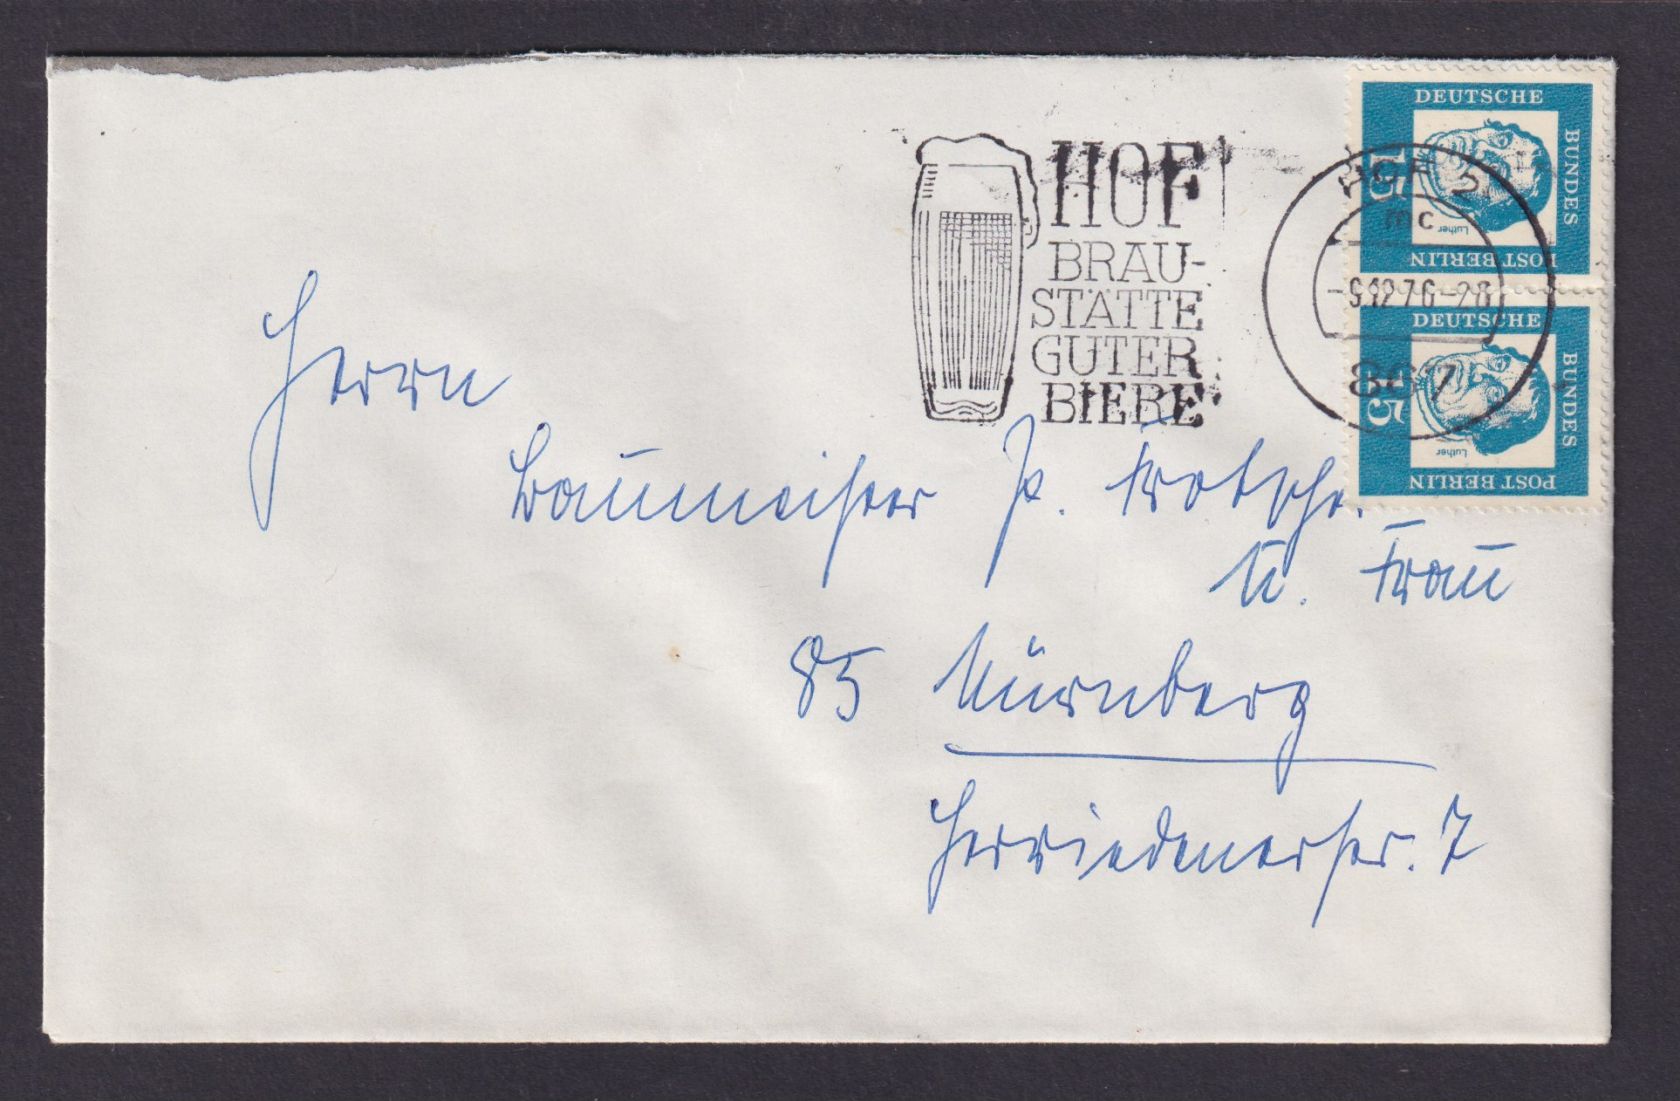 HOF
BRAU-
STÄTTE
GUTER
BIERE
HOF 2
mc
-9.12.76-20
867
DEUTSCHE
BUNDES
POST BERLIN
15
Luther
DEUTSCHE
BUNDES
POST BERLIN
15
Luther
Herrn
Baumeister P.
u. Frau
85 Nürnberg
Herriedenerstr. 7